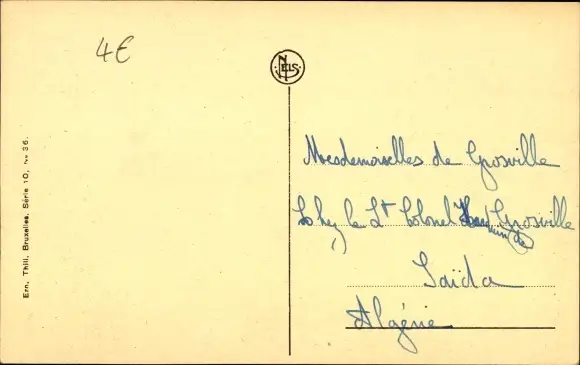 4€
NELS
Mesdemoiselles de Grosville
chez le Lt Colonel Grosville
de
Saïda
Algérie
Ern. Thill, Bruxelles. Série 10, No 36.